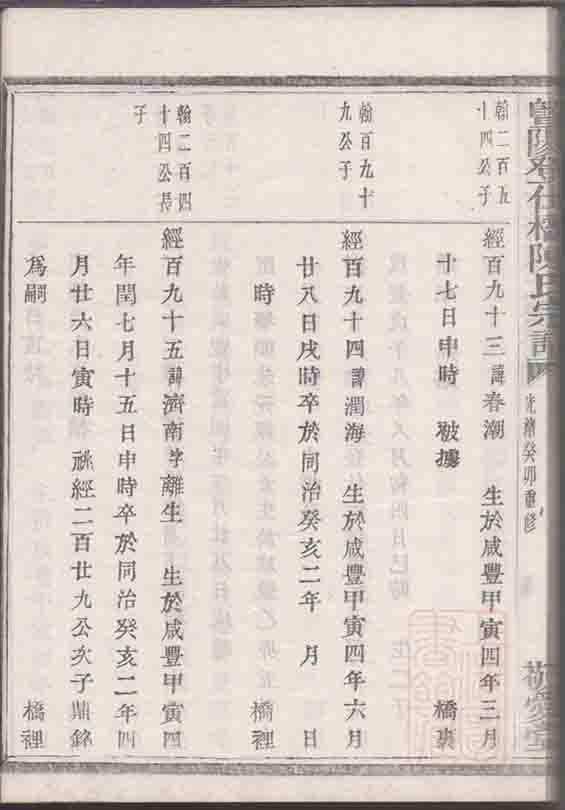 暨陽 石橋陳氏宗譜 光緒癸卯重修 敬愛堂
翰二百五
十四公子
經百九十三諱春潮 生於咸豐甲寅四年三月
十七日申時 被擄 橋裏
翰百九十
九公子
經百九十四諱潤海 生於咸豐甲寅四年六月
廿八日戌時卒於同治癸亥二年 月 日
時 橋裡
翰二百四
十四公長
子
經百九十五諱濟南字離生 生於咸豐甲寅四
年閏七月十五日申時卒於同治癸亥二年四
月廿六日寅時 祧經二百廿九公次子鼎銘
為嗣 橋裡